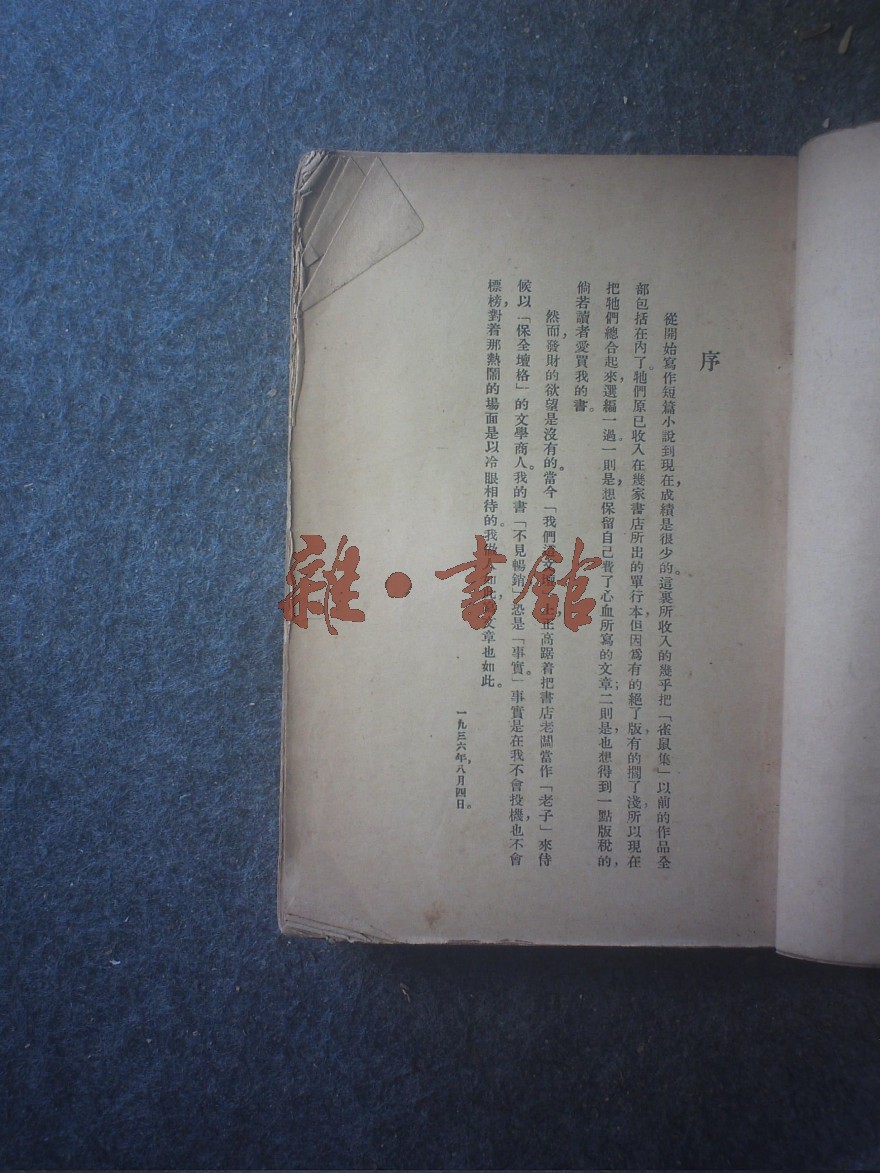 序
從開始寫作短篇小說到現在,成績是很少的。這裏所收入的幾乎把「雀鼠集」以前的作品全
部包括在內了。牠們原已收入在幾家書店所出的單行本,但因爲有的絕了版,有的擱了淺,所以現在
把牠們總合起來,選編一過。一則是,想保留自己費了心血所寫的文章;二則是,也想得到一點版稅的,
倘若讀者愛買我的書。
然而,發財的欲望是沒有的。當今「我們這文壇」上,正高踞着把書店老闆當作「老子」來侍
候,以「保全壇格」的文學商人。我的書「不見暢銷」恐是「事實」。事實是在我不會投機,也不會
標榜,對着那熱鬧的場面是以冷眼相待的。我做人如此,文章也如此。
一九三六年,八月四日。
雜·書館